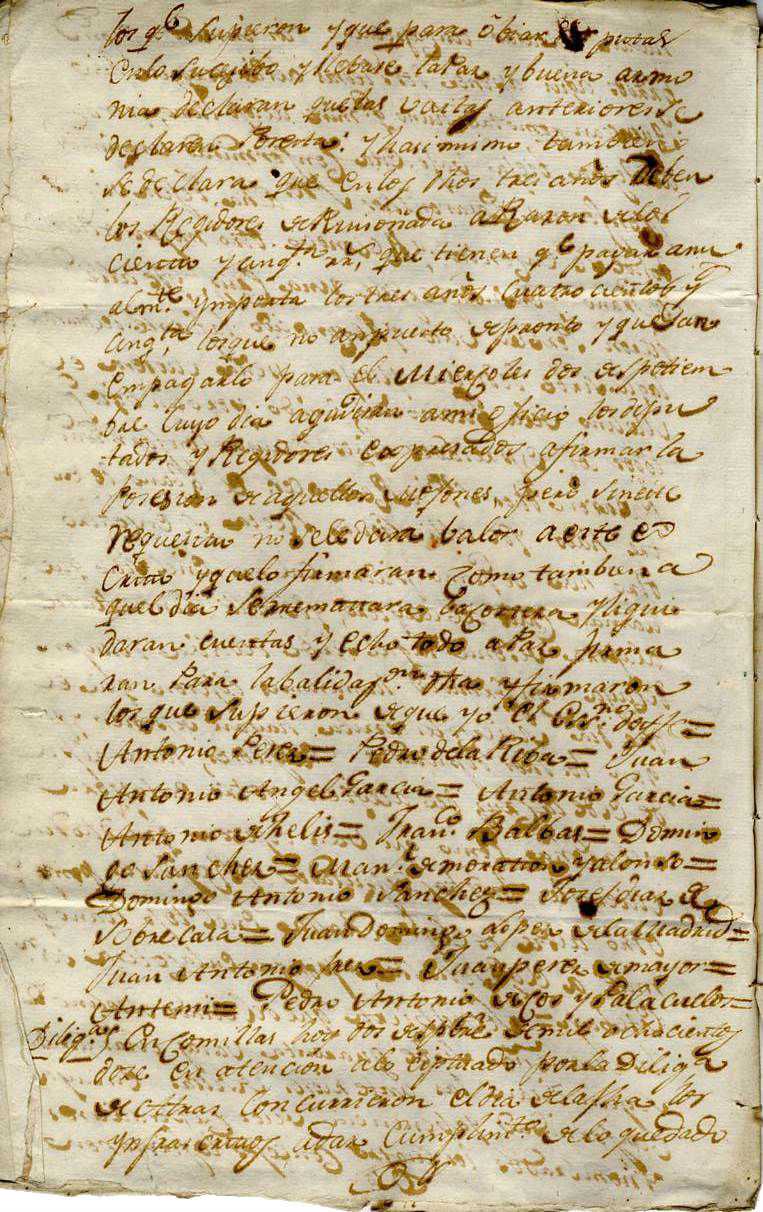 los q.e supieron y que para obiar disputas
en lo sucesibo y llebase la Paz y buena armo
nia declaran que las vaitas anteriores se
declaran y hasi mismo tambien
se declara que en los dhos tres años deben
los Regidores de Ruisenada a Razon de los
ciento y cinq.ta rr.s que tienen q.e pagar anu
alm.te ymporta los tres años Cuatro cientos y
cinq.ta los que no an puesto de pronto y quedan
en pagarlo para el Miercoles dos de septiem
bre cuyo dia a mi oficio los dipu
tados y Regidores expresados a firmar la
posesion de aquellos pero sin este
requesito no se le dara balor a este es
crito y que lo firmaran Como tambien a
quel dia se rrematara y liqui
daran cuentas y echo todo a Paz firma
ran Para la balidaz.on dha y firmaron
los que supieron de que yo el Es.no doy fee =
Antonio Perez = Pedro de la Riba = Juan
Antonio Angel Garcia = Antonio Garcia =
Antonio de Thelis = Fran.co Balbas = Domin
go Sanchez = Man.l de moratton y alonso =
Domingo Antonio Sanchez = Josef diaz de
Sobrecasa = Juan Domingo de la Madrid =
Juan Antonio = Juan perez de mayor =
Antemi = Pedro Antonio de Cos y Palacuelos =
Dilig.as En Comillas hoy dos de sptbre de mil ochocientos
doze en atencion a lo esptuado por la Dilig.a
de Attras Concurrieron el dia de la fha los
ynfraescritos a dar Cumplim.to de lo quedado